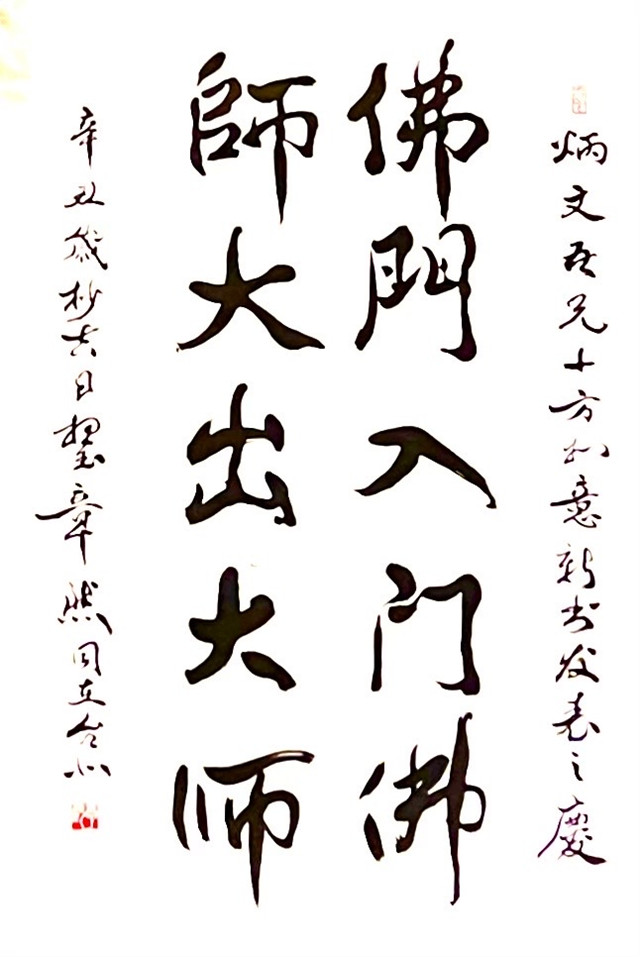 炳文吾兄十方如意新书发表之慶
佛門入门佛
師大出大师
辛丑歲杪吉日章同在台北